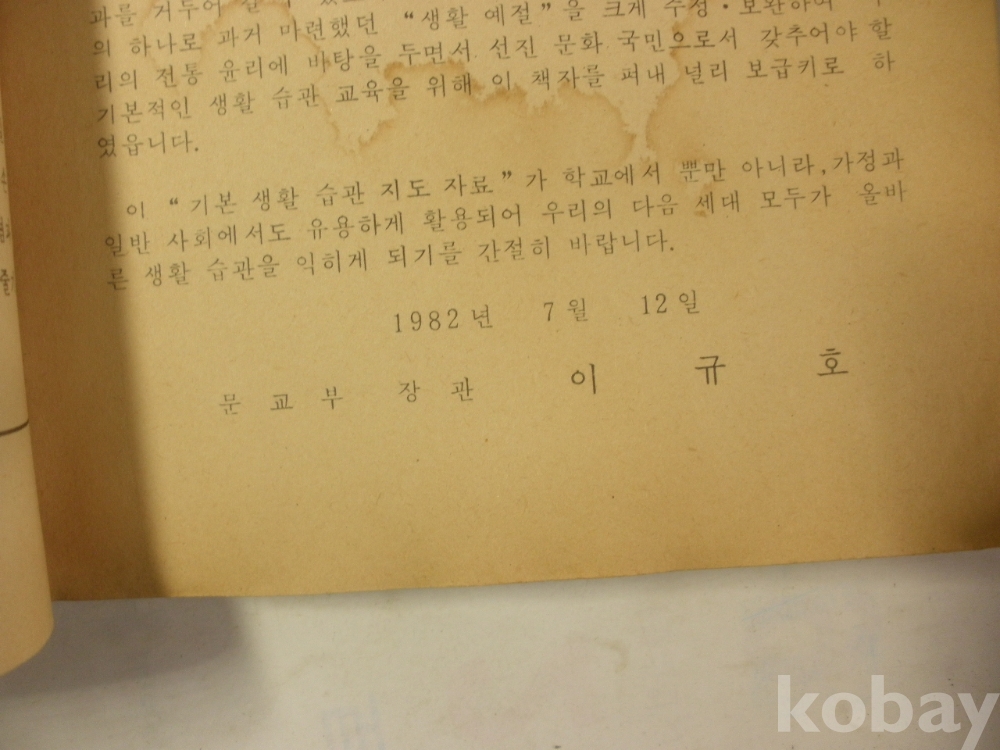 과를 거두어
의 하나로 과거 마련했던 “생활 예절”을 크게 수정·보완하여
리의 전통 윤리에 바탕을 두면서 선진 문화 국민으로서 갖추어야 할
기본적인 생활 습관 교육을 위해 이 책자를 펴내 널리 보급키로 하
였읍니다.
이 “기본 생활 습관 지도 자료”가 학교에서 뿐만 아니라, 가정과
일반 사회에서도 유용하게 활용되어 우리의 다음 세대 모두가 올바
른 생활 습관을 익히게 되기를 간절히 바랍니다.
1982년 7월 12일
문교부 장관 이규호
kobay